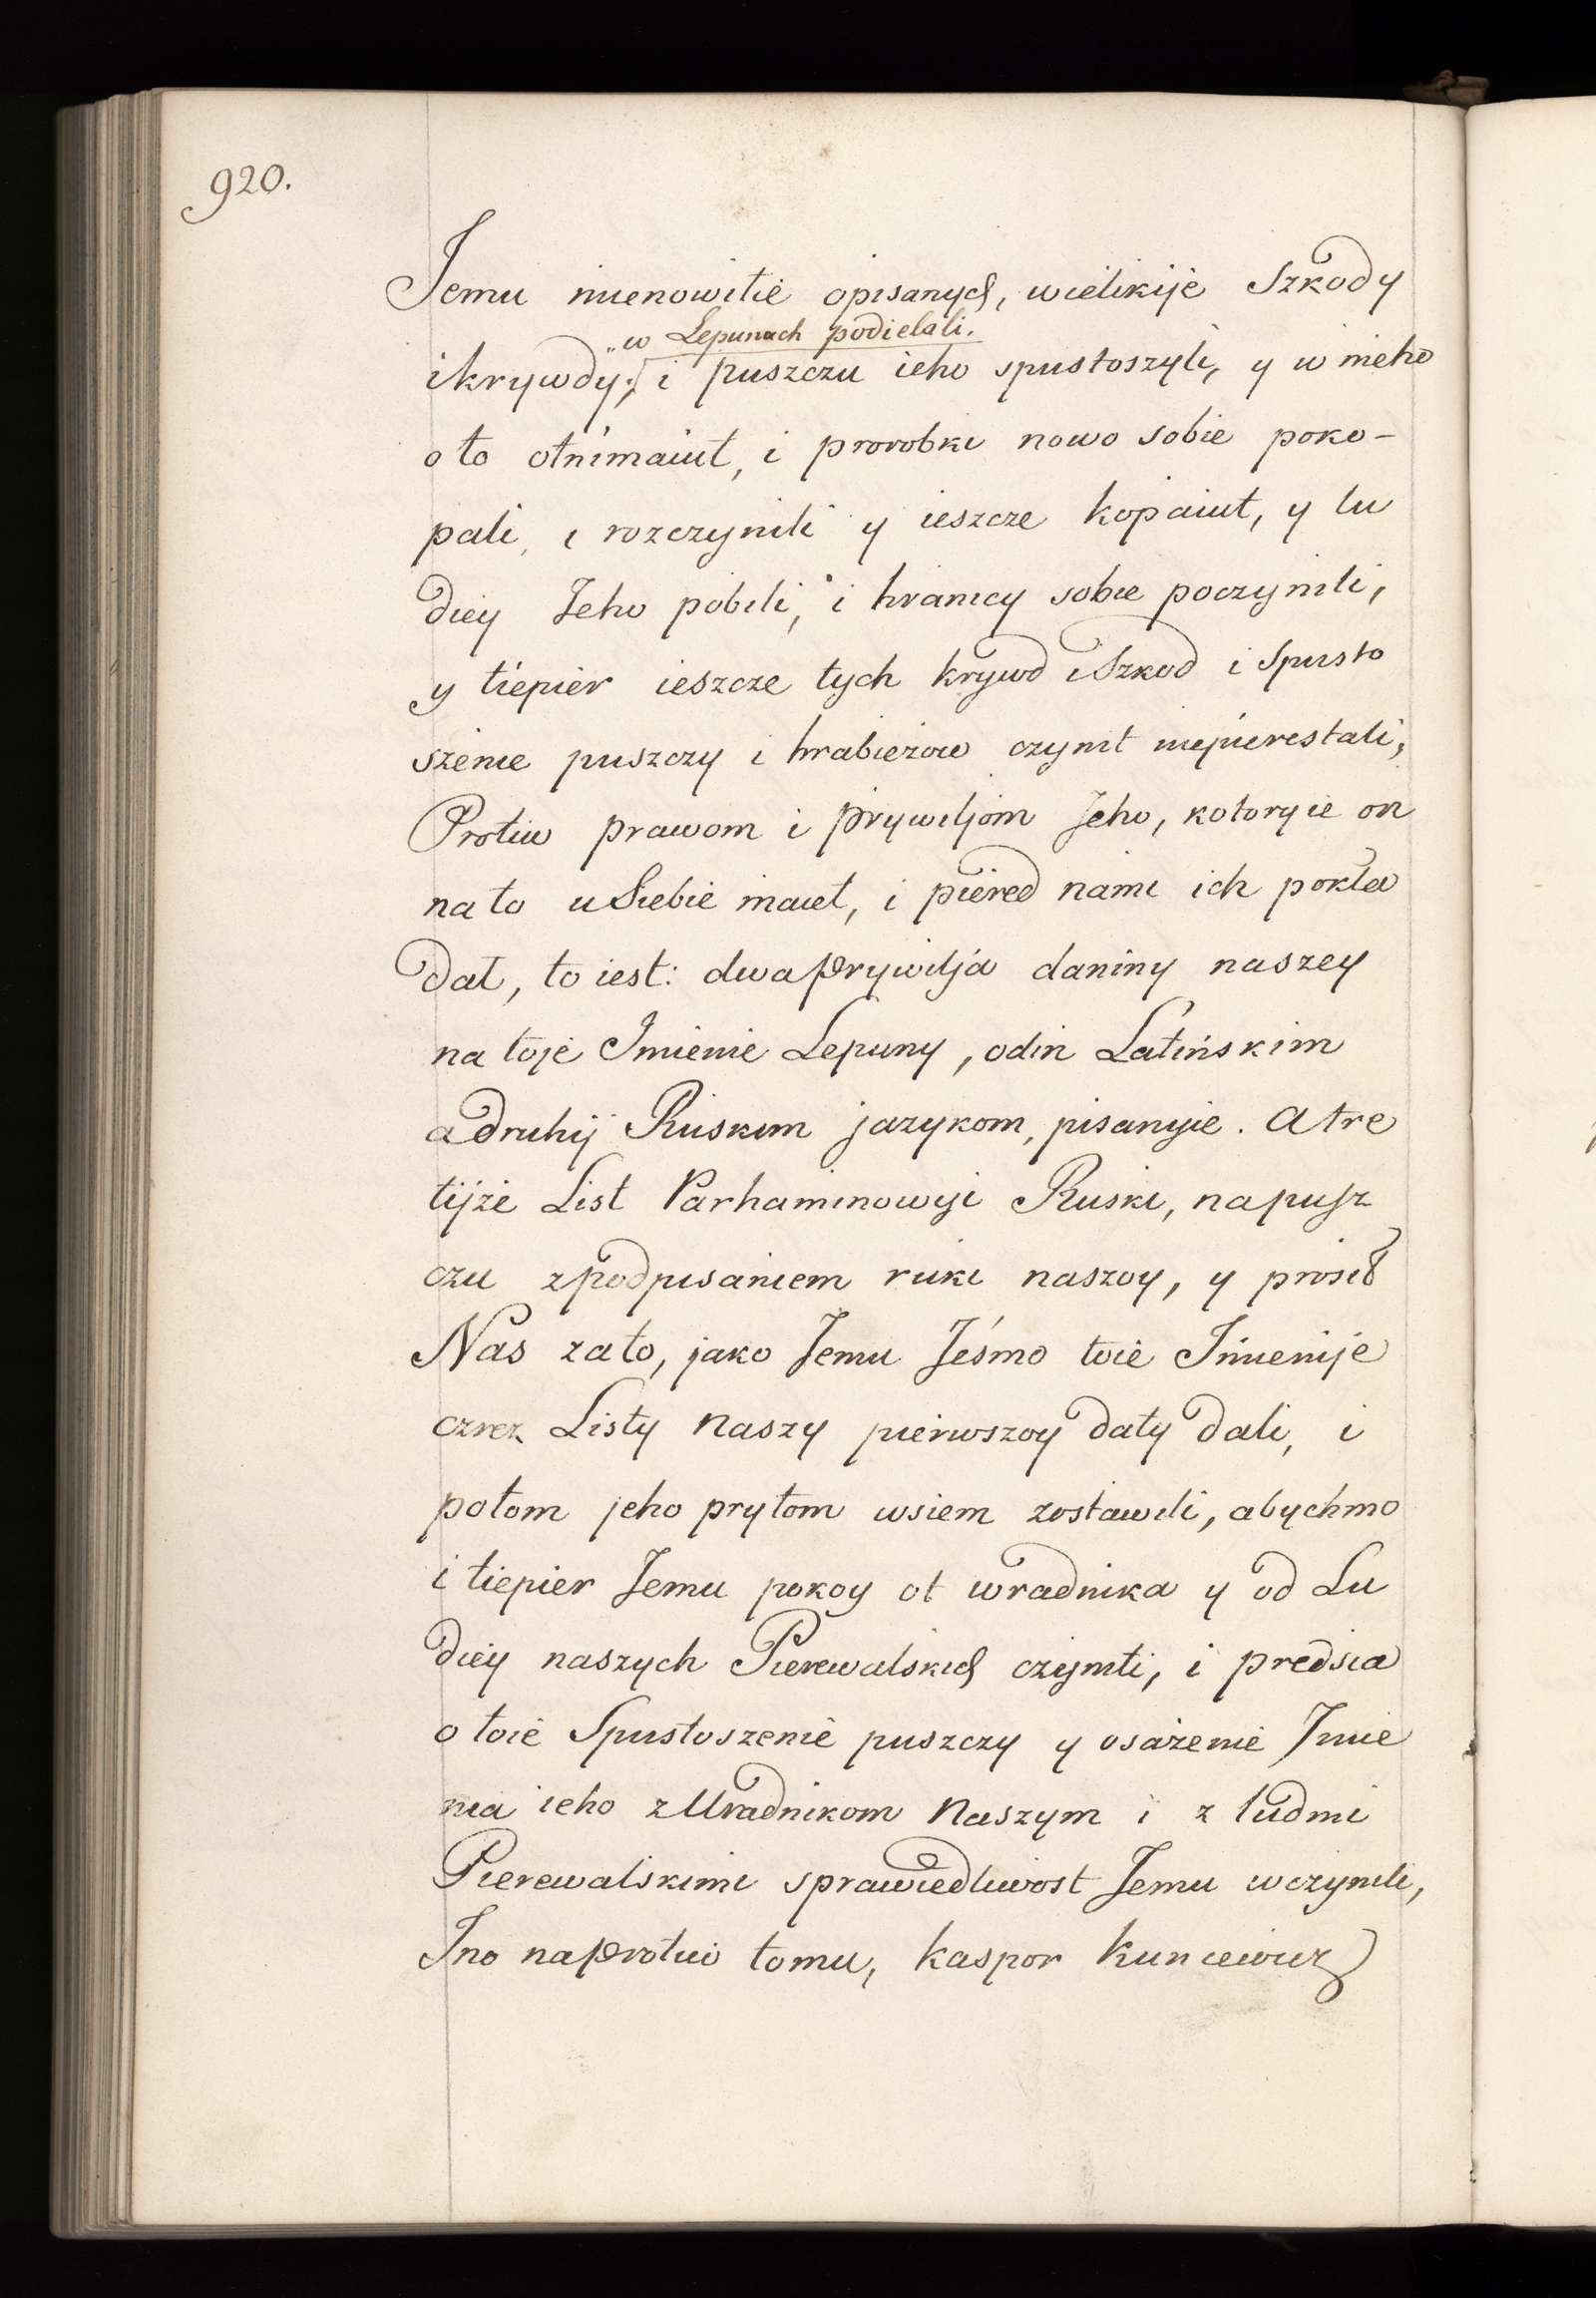 920.
Jemu mienowitie opisanych, wielikije Szkody
„w Lepunach podielali.
i krywdy, i puszczu ieho spustoszyli, y w nieho
o to otnimaiut, i prorobki nowo sobie poko-
pali, i rozczynili y ieszcze kopaiut, y lu
diey Jeho pobili, i hranicy sobie poczynili,
y tiepier ieszcze tych krywd i Szkod i Spusto
szenie puszczy i hrabieżow czynit nieperestali,
Protiw prawom i prywiljom Jeho, kotoryie on
na to u Siebie maiet, i piered nami ich pokła
dał, to iest: dwa prywilja daniny naszey
na toje Imienie Lepuny, odin Latińskim
a druhij Ruskim jazykom, pisanyie. A tre
tijże List Parhaminowyi Ruski, na pusz
czu z podpisaniem ruki naszoy, y prosił
Nas za to, jako Jemu Jeśmo toie Imienije
czrez Listy Naszy pierwszoy daty dali, i
potom jeho pry tom wsiem zostawili, abychmo
i tiepier Jemu pokoy ot wradnika y od Lu
diey naszych Pierewalskich czynili, i predsia
o toie Spustoszenie puszczy y osażenie Imie
nia ieho z Uradnikom Naszym i z ludmi
Pierewalskimi sprawiedliwost Jemu wczynili,
Ino naprotiw tomu, Kaspor Kuncewicz